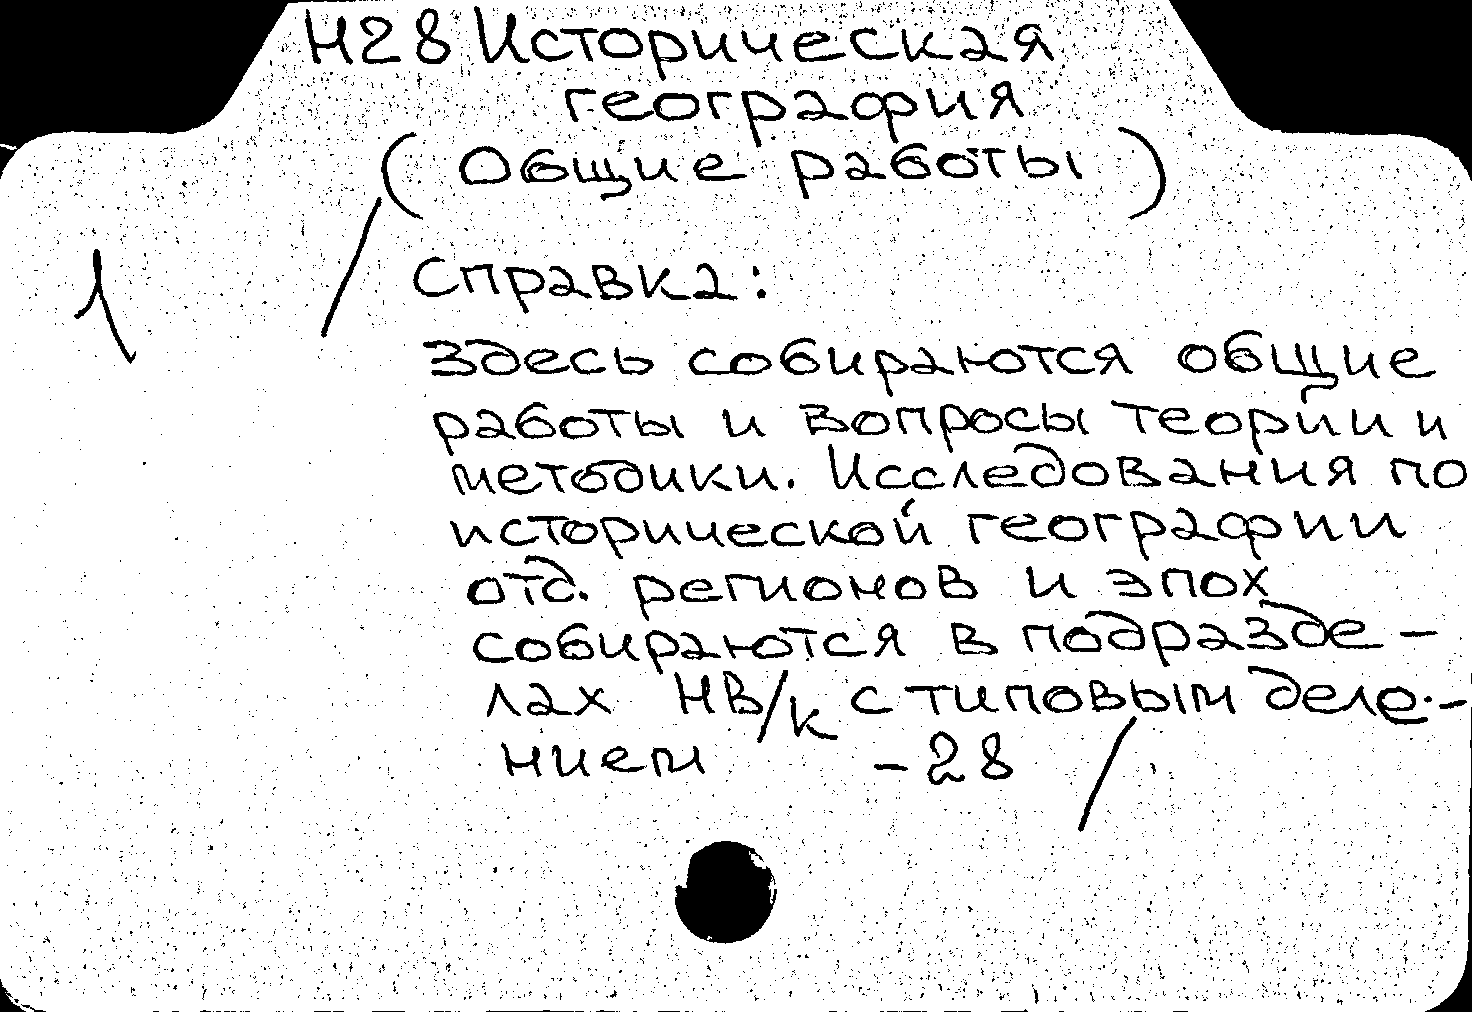 Н28 Историческая
география
(Общие работы)
Справка:
Здесь собираются общие
работы и вопросы теории и
методики. Исследования по
исторической географии
отд. регионов и эпох
собираются в подразде-
лах НВ/к с типовым деле-
нием -28